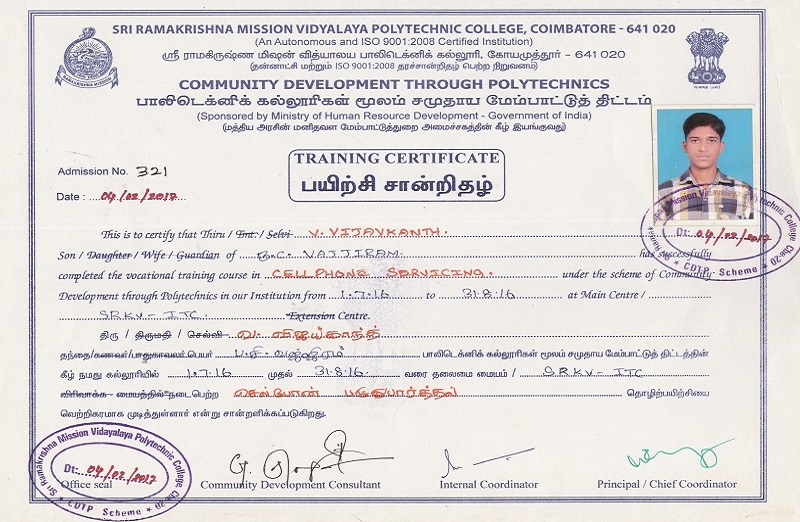 SRI RAMAKRISHNA MISSION VIDYALAYA POLYTECHNIC COLLEGE, COIMBATORE - 641 020
(An Autonomous and ISO 9001:2008 Certified Institution)
ஸ்ரீ ராமகிருஷ்ண மிஷன் வித்யாலய பாலிடெக்னிக் கல்லூரி, கோயமுத்தூர் - 641 020
(தன்னாட்சி மற்றும் ISO 9001:2008 தரச்சான்றிதழ் பெற்ற நிறுவனம்)
COMMUNITY DEVELOPMENT THROUGH POLYTECHNICS
பாலிடெக்னிக் கல்லூரிகள் மூலம் சமுதாய மேம்பாட்டுத் திட்டம்
(Sponsored by Ministry of Human Resource Development - Government of India)
(மத்திய அரசின் மனிதவள மேம்பாட்டுத்துறை அமைச்சகத்தின் கீழ் இயங்குவது)
TRAINING CERTIFICATE
பயிற்சி சான்றிதழ்
Admission No. 321
Date : 04/02/2017
This is to certify that Thiru / Tmt. / Selvi V. VIJAYKANTH.
Son / Daughter / Wife / Guardian of B.C. VAJJIRAM. has successfully
completed the vocational training course in CELLPHONE SERVICING. under the scheme of Community
Development through Polytechnics in our Institution from 1.7.16 to 31.8.16 at Main Centre /
SRKV - ITC Extension Centre.
திரு / திருமதி / செல்வி வ. விஜய்காந்த்
தந்தை/கணவர்/பாதுகாவலர்பெயர் ப.சி. வஜ்ஜிரம் பாலிடெக்னிக் கல்லூரிகள் மூலம் சமுதாய மேம்பாட்டுத் திட்டத்தின்
கீழ் நமது கல்லூரியில் 1.7.16 முதல் 31.8.16 வரை தலைமை மையம் / SRKV - ITC
விரிவாக்க மையத்தில் நடைபெற்ற செல்போன் பழுதுபார்த்தல் தொழிற்பயிற்சியை
வெற்றிகரமாக முடித்துள்ளார் என்று சான்றளிக்கப்படுகிறது.
Sri Ramakrishna Mission Vidyalaya Polytechnic College Cbe-20
Dt: 04/02/2017
* CDTP Scheme *
Sri Ramakrishna Mission Vidyalaya Polytechnic College Cbe-20
Dt: 04/02/2017
* CDTP Scheme *
Office seal
Community Development Consultant
Internal Coordinator
Principal / Chief Coordinator